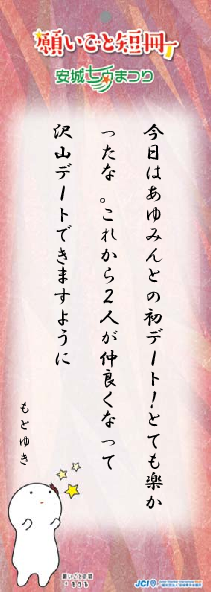 願いごと短冊
安城七夕まつり
今日はあゆみんとの初デート!とても楽か
ったな。これから2人が仲良くなって
沢山デートできますように
もとゆき
願いごと短冊
JCI